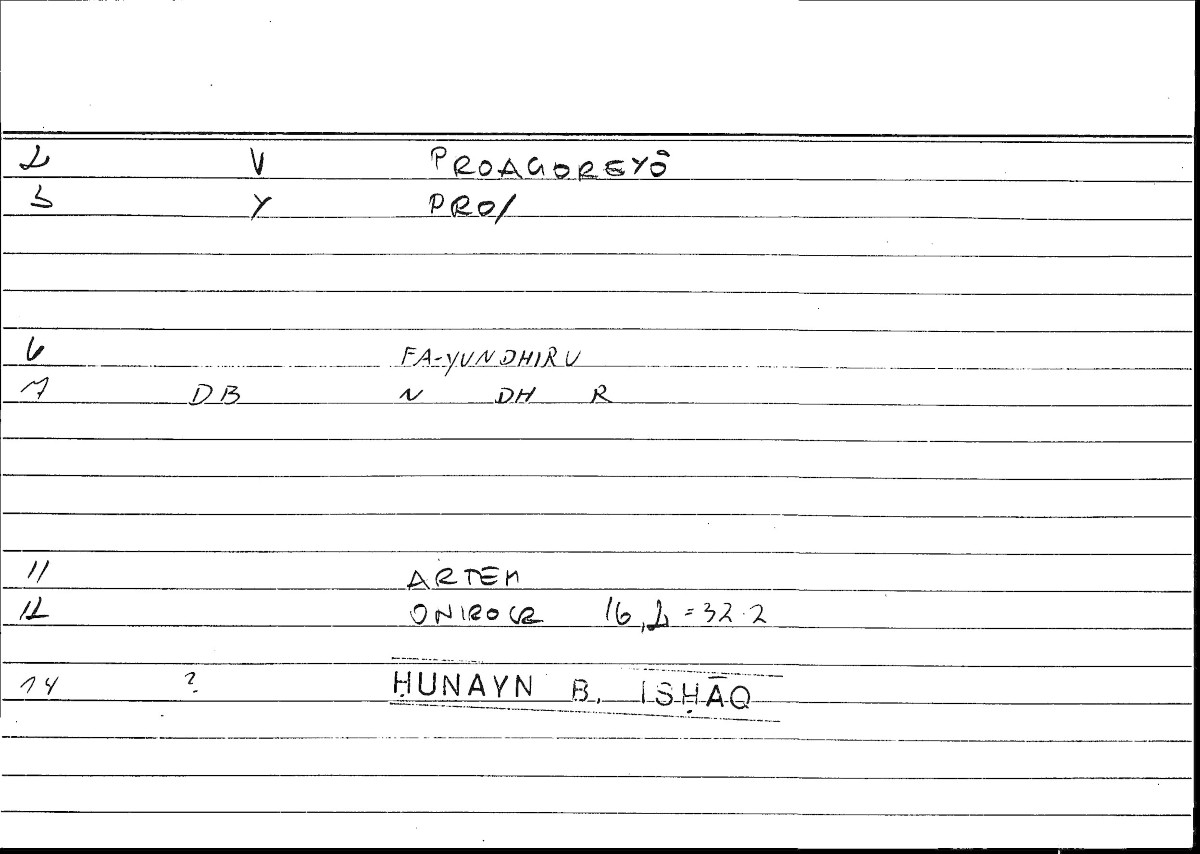 2 V PROAGOREYŌ
3 Y PRO/
6 FA-YUNDHIRU
7 DB N DH R
11 ARTEM
12 ONIROCR 16,2 = 32.2
14 ? ḤUNAYN B. ISḤĀQ